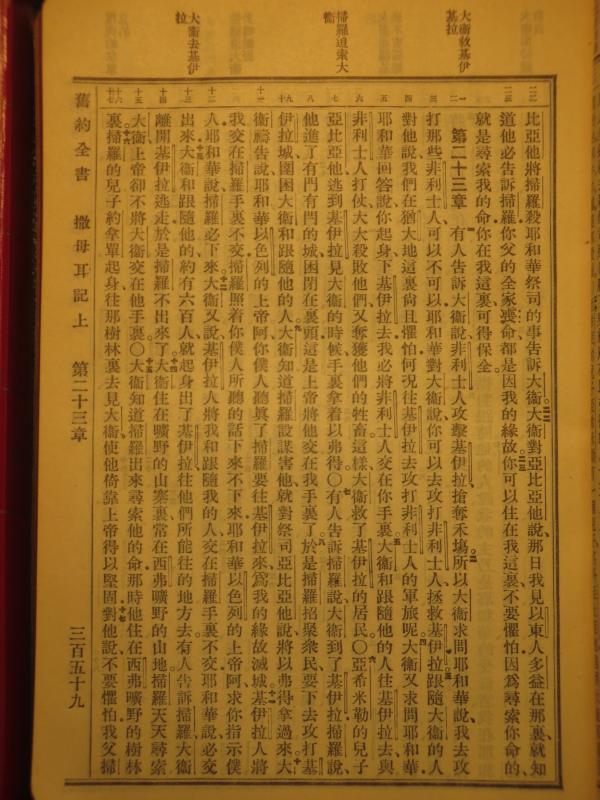 大衛救基伊
基拉
掃羅追索大
衛
大衛去基伊
拉
比亞他將掃羅殺耶和華祭司的事告訴大衛大衛對亞比亞他說那日我見以東人多益在那裏就知
道他必告訴掃羅你父的全家喪命都是因我的緣故你可以住在我這裏不要懼怕因爲尋索你命的
就是尋索我的命你在我這裏可得保全
第二十三章 有人告訴大衛說非利士人攻擊基伊拉搶奪禾場所以大衛求問耶和華說我去攻
打那些非利士人可以不可以耶和華對大衛說你可以去攻打非利士人拯救基伊拉跟隨大衛的人
對他說我們在猶大地這裏尙且懼怕何況往基伊拉去攻打非利士人的軍旅呢大衛又求問耶和華
耶和華回答說你起身下基伊拉去我必將非利士人交在你手裏大衛和跟隨他的人往基伊拉去與
非利士人打仗大大殺敗他們又奪獲他們的牲畜這樣大衛救了基伊拉的居民〇亞希米勒的兒子
亞比亞他逃到基伊拉見大衛的時候手裏拿着以弗得〇有人告訴掃羅說大衛到了基伊拉掃羅說
他進了有門有閂的城困閉在裏頭這是上帝將他交在我手裏了於是掃羅招聚衆民要下去攻打基
伊拉城圍困大衛和跟隨他的人大衛知道掃羅設謀害他就對祭司亞比亞他說將以弗得拿過來大
衛禱告說耶和華以色列的上帝阿你僕人聽眞了掃羅要往基伊拉來爲我的緣故滅城基伊拉人將
我交在掃羅手裏不交掃羅照着你僕人所聽的話下來不下來耶和華以色列的上帝阿求你指示僕
人耶和華說掃羅必下來大衛又說基伊拉人將我和跟隨我的人交在掃羅手裏不交耶和華說必交
出來大衛和跟隨他的約有六百人就起身出了基伊拉往他們所能往的地方去有人告訴掃羅大衛
離開基伊拉逃走於是掃羅不出來了大衛住在曠野的山寨裏常在西弗曠野的山地掃羅天天尋索
大衛上帝卻不將大衛交在他手裏〇大衛知道掃羅出來尋索他的命那時他住在西弗曠野的樹林
裏掃羅的兒子約拿單起身往那樹林裏去見大衛使他倚靠上帝得以堅固對他說不要懼怕我父掃
舊約全書 撒母耳記上 第二十三章 三百五十九